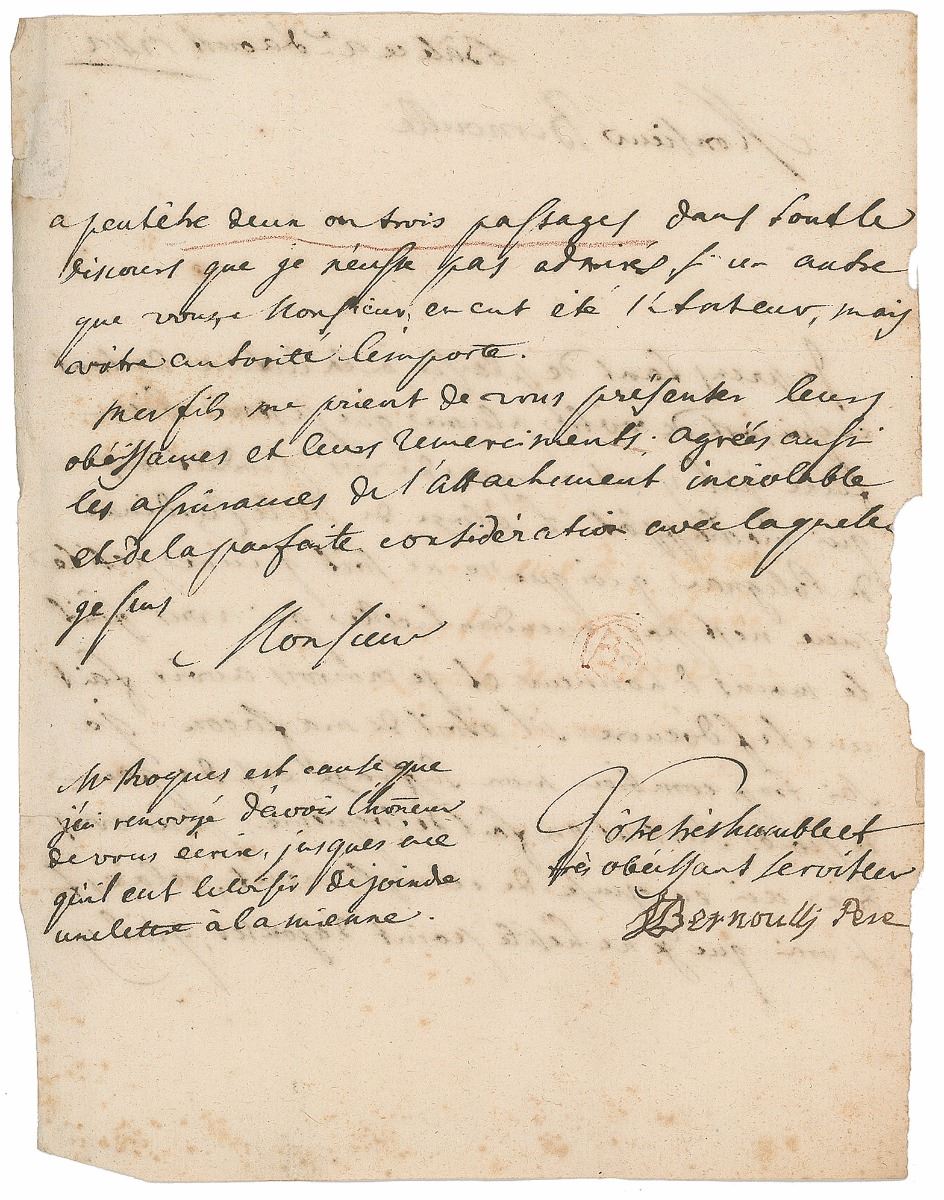 a peutêtre deux ou trois passages dans tout le
discours que je n'eusse pas admirés, si un autre
que vous, Monsieur, en eut été l'Auteur, mais
vôtre autorité l'emporte.
Mes fils me prient de vous présenter leurs
obéissances et leurs remerciments. agréés aussi
les assurances de l'attachement inviolable
et de la parfaite considération avec laquelle
je suis
Monsieur
Mr Roques est cause que
j'ai renvoyé d'avoir l'honneur
de vous écrire, jusques à ce
qu'il eut le loisir de joindre
une lettre à la mienne.
Vôtre très humble et
très obéissant serviteur
JBernoulli Pere